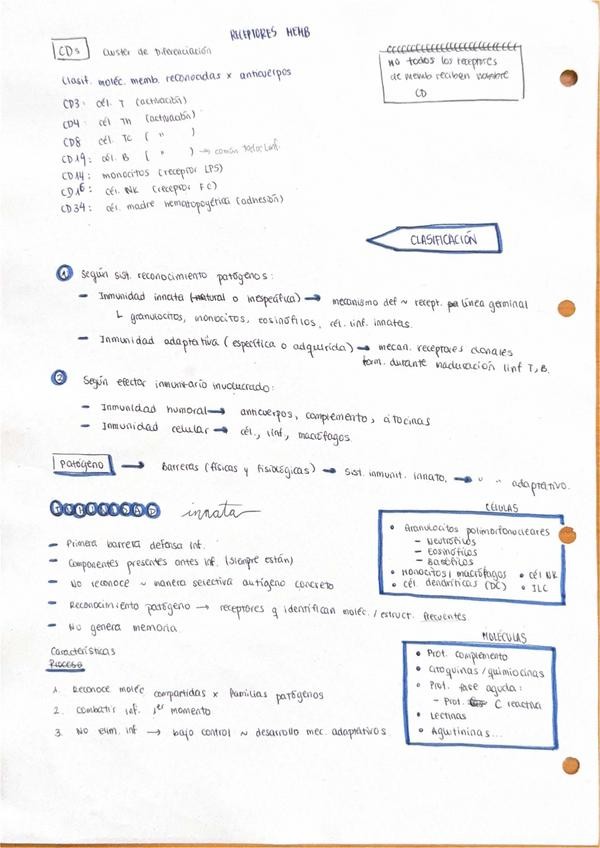 RECEPTORES MEMB
CDs Cluster de Diferenciación
No todos los receptores
de memb reciben nombre
CD
Clasif. moléc. memb. reconocidas x anticuerpos
CD3: cél. T (activación)
CD4: cél. Th (activación)
CD8 cél. Tc ( " )
CD19: cél. B ( " ) → común todos linf.
CD14: monocitos (receptor LPS)
CD16: cél. NK (receptor FC)
CD34: cél. madre hematopoyética (adhesión)
CLASIFICACIÓN
1 Según sist. reconocimiento patógenos:
- Inmunidad innata (natural o inespecífica) → mecanismo def ~ recept. línea germinal
↳ granulocitos, monocitos, eosinófilos, cél. linf. innatas.
- Inmunidad adaptativa (específica o adquirida) → mecan. receptores clonales
form. durante maduración linf T, B.
2 Según efector inmunitario involucrado:
- Inmunidad humoral → anticuerpos, complemento, citocinas
- Inmunidad celular → cél., linf, macrófagos
Patógeno → Barreras (físicas y fisiológicas) → sist. inmunit. innato. → " " adaptativo.
INMUNIDAD innata
- Primera barrera defensa inf.
- Componentes presentes antes inf. (siempre están)
- No reconoce ~ manera selectiva antígeno concreto
- Reconocimiento patógeno → receptores q identifican moléc. / estruct. frecuentes
- No genera memoria.
CÉLULAS
• Granulocitos polimorfonucleares
- Neutrófilos
- Eosinófilos
- Basófilos
• Monocitos / macrófagos • cél NK
• cél. dendríticas (DC) • ILC
Características
Proceso
1. Reconoce moléc compartidas x familias patógenos
2. Combatir inf. 1er momento
3. No elim. inf → bajo control ~ desarrollo mec. adaptativos.
MOLÉCULAS
• Prot. complemento
• Citoquinas / quimiocinas
• Prot. fase aguda:
- Prot. C reactiva
• Lectinas
• Aglutininas...